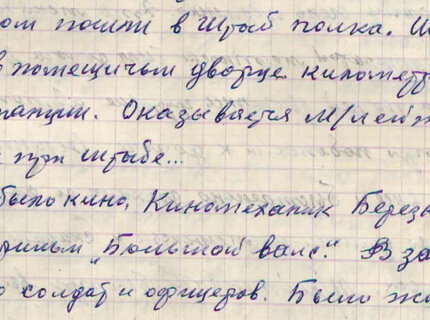 ом пошли в штаб полка. Ш
в помещичьи дворце километр
танции. Оказывается м/лей ж
при штабе...
было кино, Киномеханик Березы
фильм „Большой вальс". В за
о солдат и офицеров. Было жа